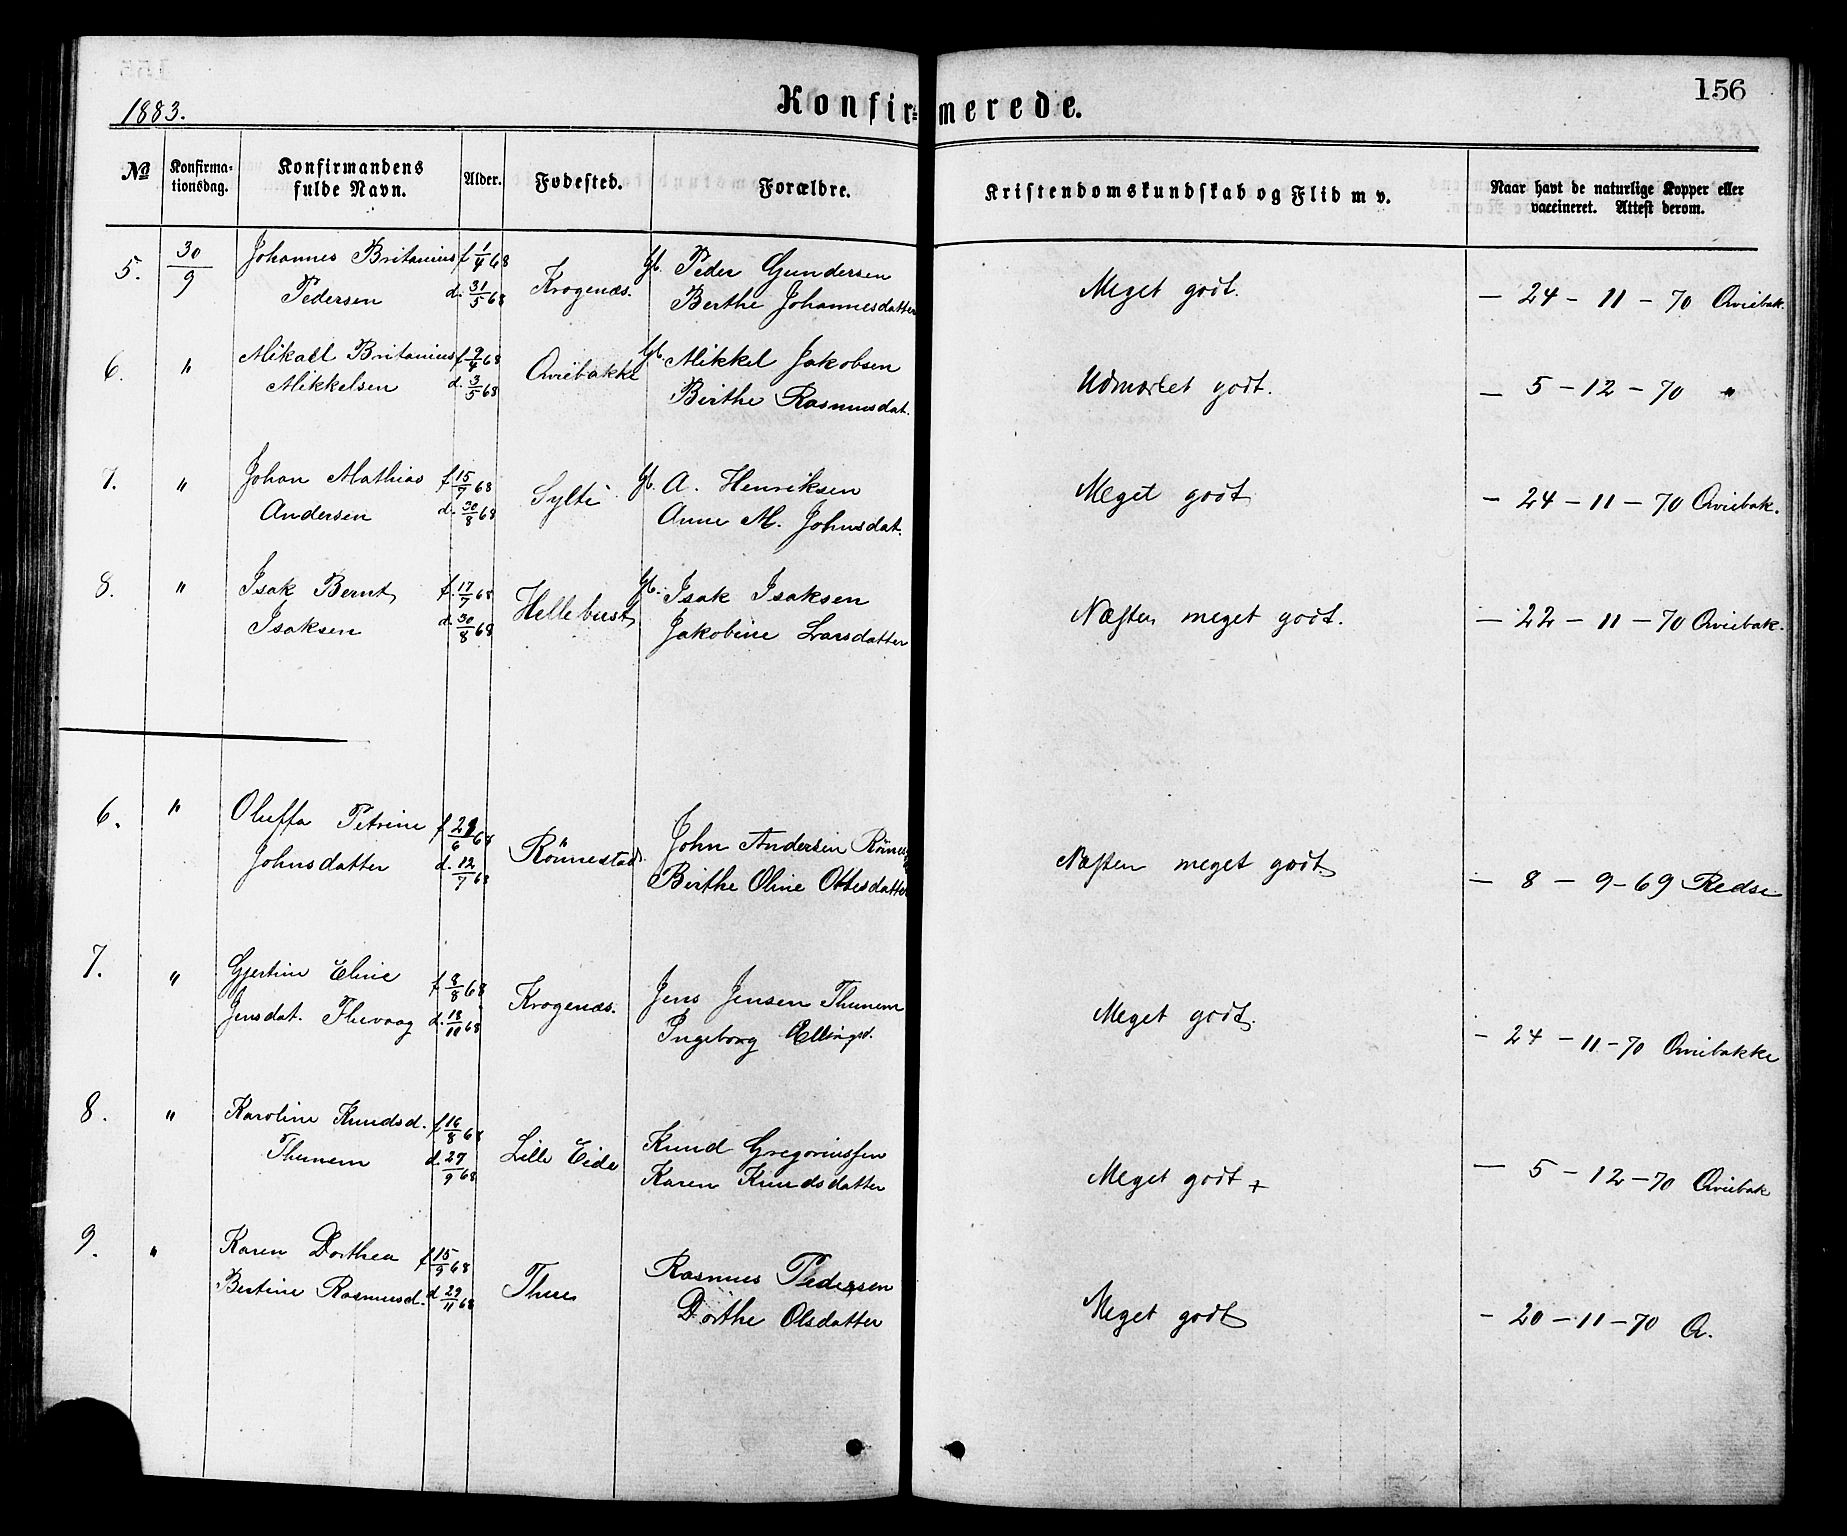 156
1883.
Konfirmerede.
No
Konfirma-
tionsdag.
Konfirmandens
fulde Navn.
Alder.
Fødested.
Forældre.
Kristendomskundskab og Flid m v.
Naar havt de naturlige Kopper eller
vaccineret. Attest derom.
5. 30/9 Johannes Britanius f 1/4 68 Gb. Peder Gundersen
Pedersen d. 31/5 68 Krogenæs. Berthe Johannesdatter
Meget godt. — 24 – 11 – 70 Qviebak.
6. " Mikael Britanius f 9/4 68 Gb. Mikkel Jakobsen
Mikkelsen d. 3/5 68 Qviebakke Birthe Rasmusdat.
Udmærket godt. — 5 – 12 – 70 "
7. " Johan Mathias f. 15/7 68 Gb. A. Henriksen
Andersen d. 30/8 68 Sylte Anne M. Johnsdat.
Meget godt – 24 – 11 – 70 Qviebak.
8. " Isak Bernt f. 17/7 68 Gb. Isak Isaksen
Isaksen d. 30/8 68 Hellebust Jakobine Larsdatter
Næsten meget godt. — 22 – 11 – 70 Qviebak.
6. " Oluffa Petrine f 29/6 68 John Andersen
Johnsdatter d. 12/7 68 Rönnestad. Birthe Oline Ottesdatter
Næsten meget godt. — 8 – 9 – 69 Redse
7. " Gjertine Eline f 8/8 68 Jens Jensen Thunem
Jensdat. d. 18/11 68 Krogenæs. Ingeborg Ellingsd.
Meget godt. – 24 – 11 – 70 Qviebakke
8. " Karoline Knudsd. f. 16/8 68 Knud Gregoriussen
Thunem d. 27/9 68 Lille Eide Karen Knudsdatter
Meget godt + — 5 – 12 – 70 Qviebak
9. " Karen Dorthea f 15/9 68 Rasmus Pedersen
Bertine Rasmusd. d 29/11 68 Thue Dorthe Olsdatter
Meget godt – 20 – 11 – 70 Q.